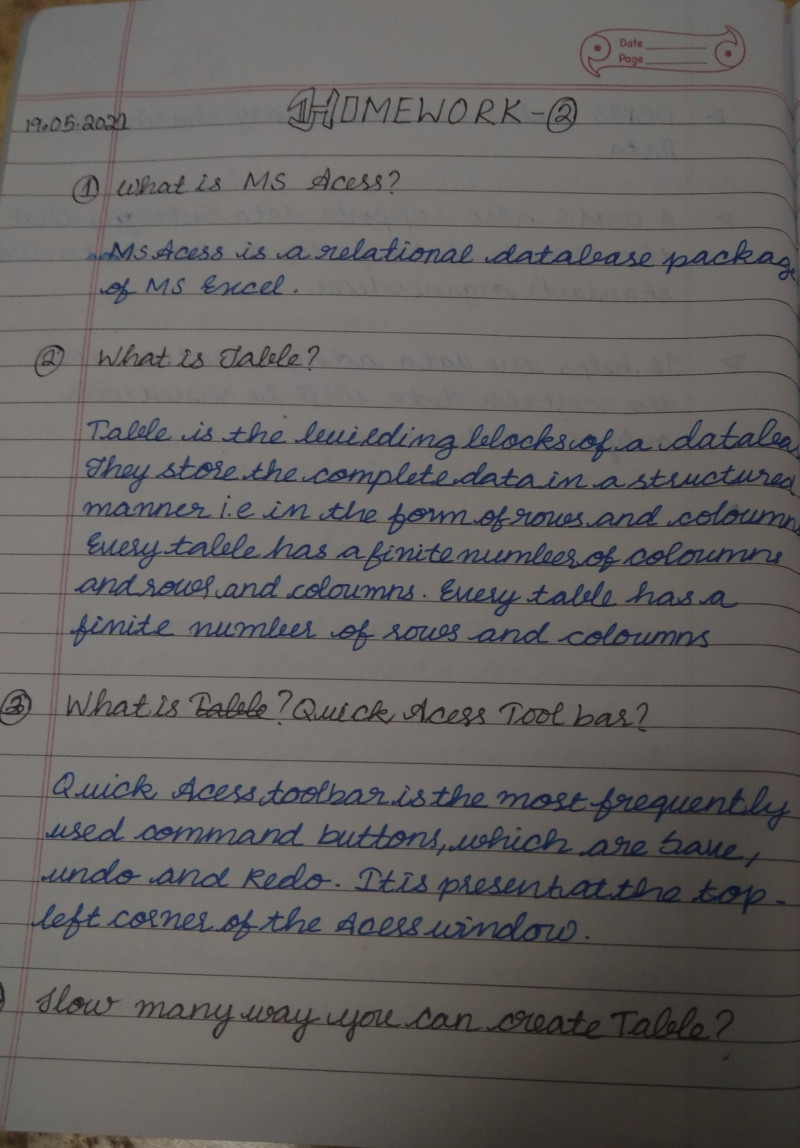 Date
Page
19.05.2021
HOMEWORK-②
① What is MS Acess?
Ms Acess is a relational database package
of MS Excel.
② What is Table?
Table is the building blocks of a databas
They store the complete data in a structured
manner i.e in the form of rows and coloumns
Every table has a finite number of coloumns
and rows and coloumns. Every table has a
finite number of rows and coloumns
③ What is Table? Quick Acess Tool bar?
Quick Acess toolbar is the most frequently
used command buttons, which are save,
undo and Redo. It is present at the top-
left corner of the Acess window.
How many way you can create Table?